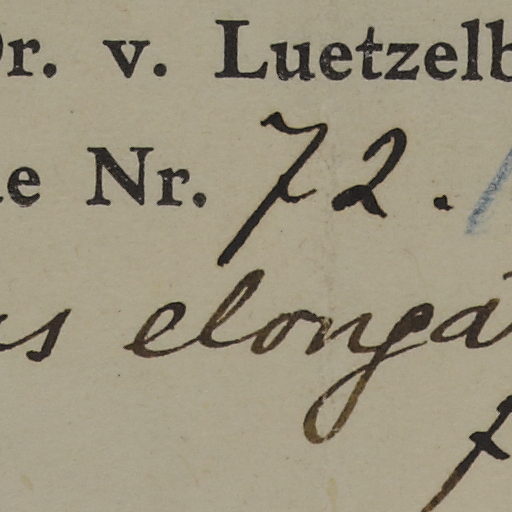 Dr. v. Luetzelb
e Nr. 72.
s elonga